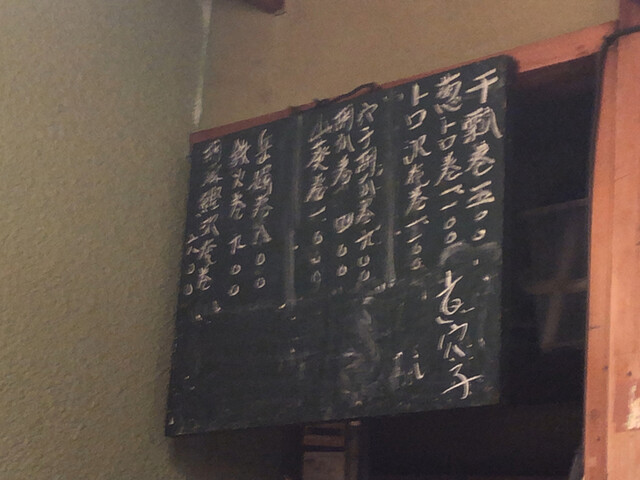 干瓢巻五〇〇
葱トロ巻一、一〇〇
煮穴子
トロ沢庵巻一、一〇〇
穴子胡瓜巻九〇〇
胡瓜巻 四〇〇
山葵巻一〇〇〇
鉄火巻九〇〇
沢庵巻
六〇〇